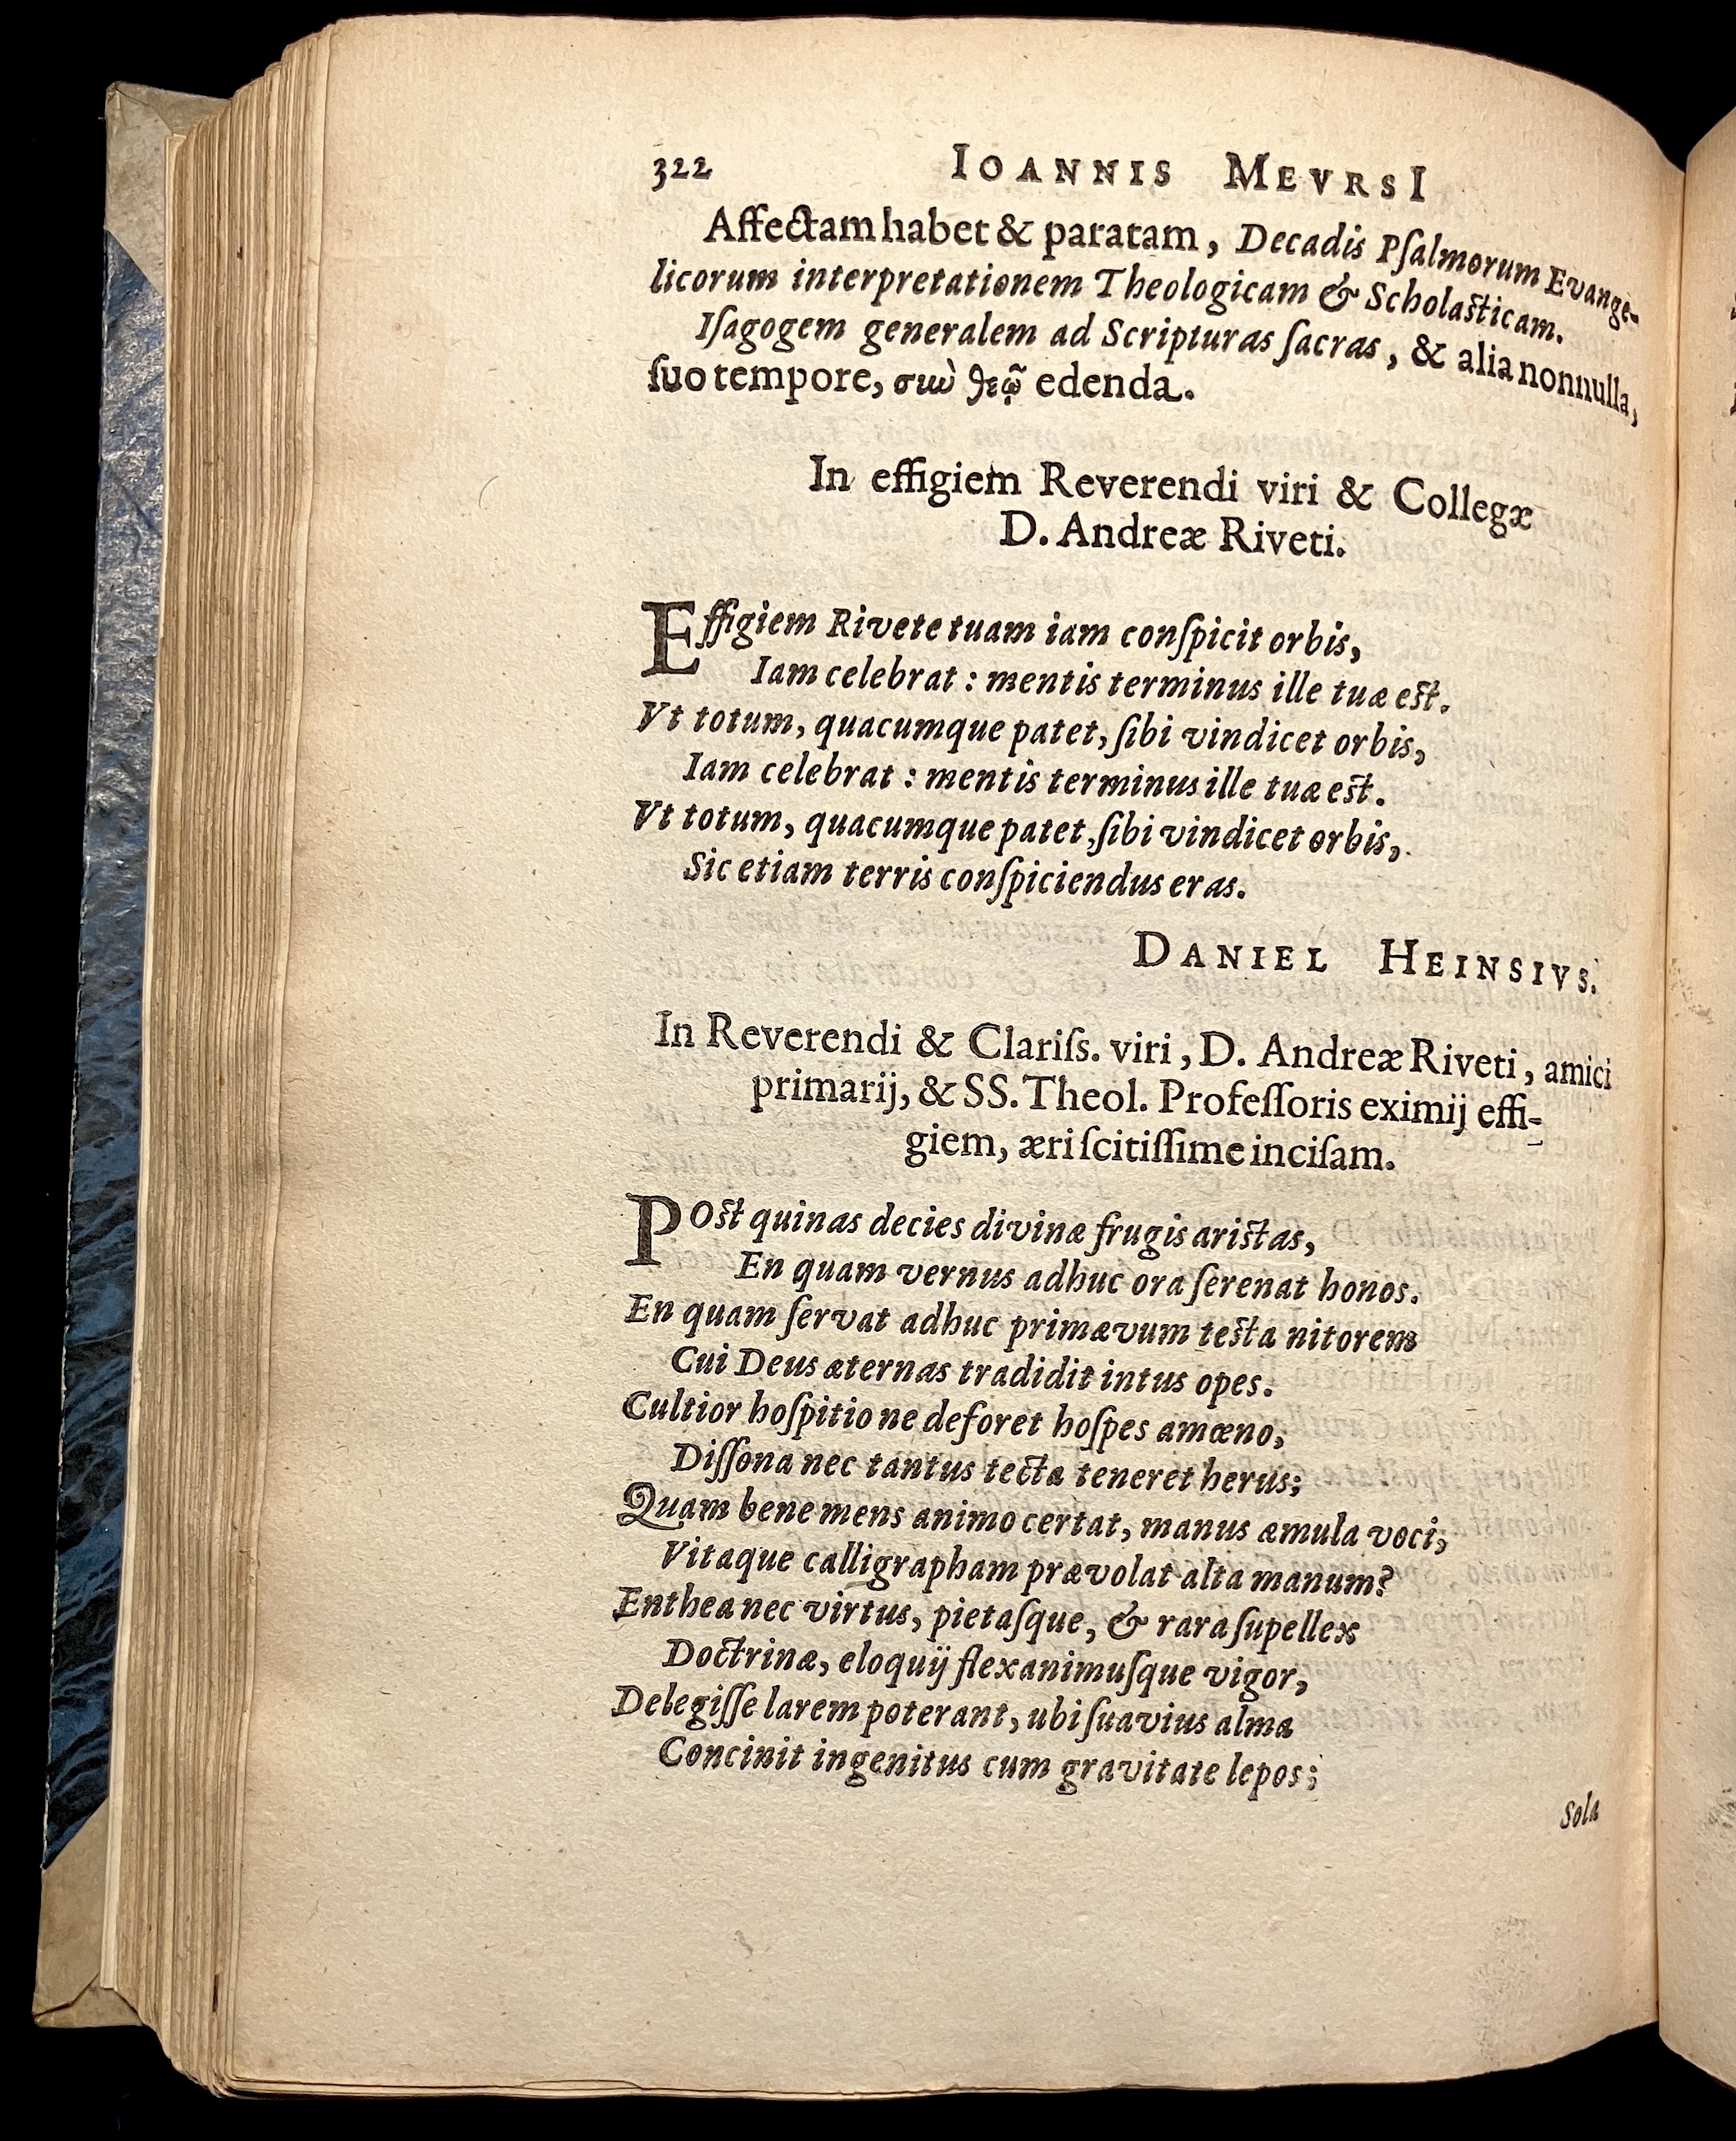 322 IOANNIS MEVRSI
Affectam habet & paratam, Decadis Pſalmorum Evange-
licorum interpretationem Theologicam & Scholaſticam.
Iſagogem generalem ad Scripturas ſacras, & alia nonnulla,
ſuo tempore, σιὼ θεῷ edenda.
In effigiem Reverendi viri & Collegæ
D. Andreæ Riveti.
Effigiem Rivete tuam iam conſpicit orbis,
Iam celebrat : mentis terminus ille tuæ eſt.
Vt totum, quacumque patet, ſibi vindicet orbis,
Iam celebrat : mentis terminus ille tuæ eſt.
Vt totum, quacumque patet, ſibi vindicet orbis,
Sic etiam terris conſpiciendus eras.
DANIEL HEINSIVS.
In Reverendi & Clariſs. viri, D. Andreæ Riveti, amici
primarij, & SS. Theol. Profeſſoris eximij effi-
giem, æri ſcitiſſime inciſam.
POſt quinas decies divinæ frugis ariſtas,
En quam vernus adhuc ora ſerenat honos.
En quam ſervat adhuc primævum teſta nitorem
Cui Deus æternas tradidit intus opes.
Cultior hoſpitio ne deforet hoſpes amœno,
Diſſona nec tantus tecta teneret herus;
Quam bene mens animo certat, manus æmula voci,
Vitaque calligrapham prævolat alta manum?
Enthea nec virtus, pietaſque, & rara ſupellex
Doctrinæ, eloquij flexanimuſque vigor,
Delegiſſe larem poterant, ubi ſuavius alma
Concinit ingenitus cum gravitate lepos;
Sola